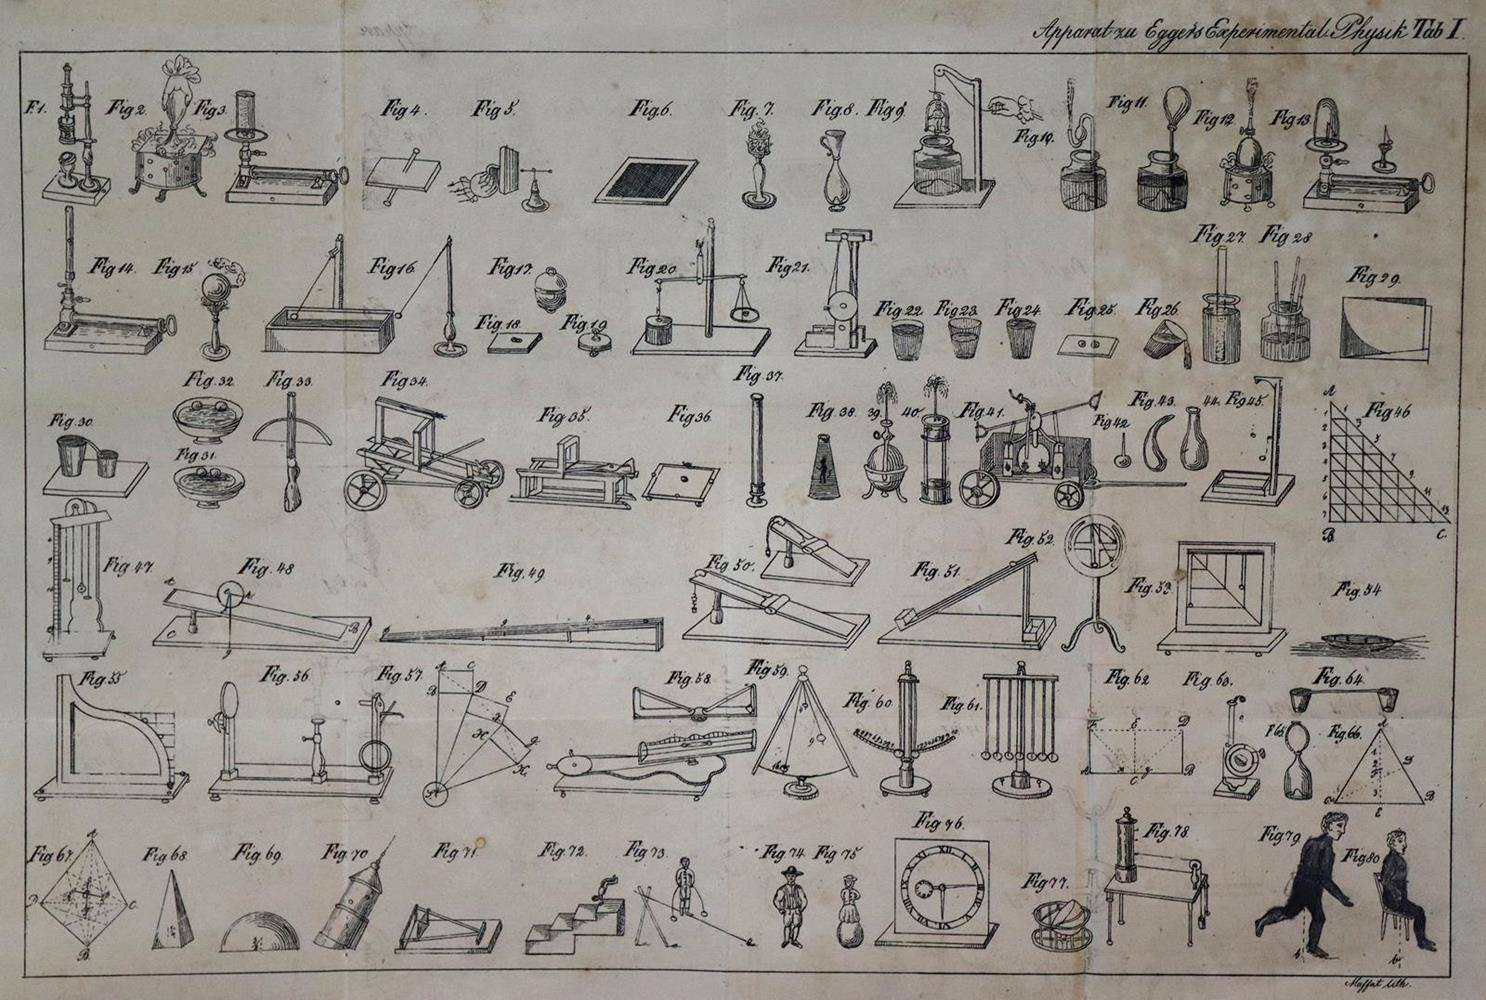 Apparat zu Eggers Experimental Physik Tab I.
F.1. Fig 2. Fig 3. Fig 4. Fig 5. Fig. 6. Fig. 7. Fig. 8. Fig 9. Fig. 10. Fig 11. Fig 12. Fig 13.
Fig 14. Fig 15 Fig 16. Fig 17. Fig 18. Fig 19. Fig 20. Fig 21. Fig 22. Fig 23. Fig 24. Fig 25. Fig 26. Fig 27. Fig 28 Fig 29.
Fig. 30. Fig. 31. Fig. 32 Fig. 33. Fig 34. Fig 35. Fig 36. Fig. 37. Fig. 38. 39. 40. Fig 41. Fig 42 Fig. 43. 44. Fig 45. Fig 46
A
1 2 3 4 5 6 7
1 3 5 7 9 11 13
B C.
Fig 47. Fig. 48 Fig. 49 Fig. 50. Fig. 51. Fig. 52. Fig. 53. Fig. 54
A B
Fig. 55 Fig. 56. Fig. 57. Fig. 58. Fig 59. Fig. 60. Fig 61. Fig. 62 Fig. 63. Fig. 64. F 65 Fig 66.
A C B D E
F E D A C B
A D C B E
Fig 67. Fig 68. Fig 69. Fig 70 Fig 71. Fig 72. Fig 73. Fig 74. Fig 75 Fig 76. Fig 77. Fig 78 Fig 79 Fig 80
A D C B
XII I II III IV V VI VII VIII IX X XI
b
Moffat lith.